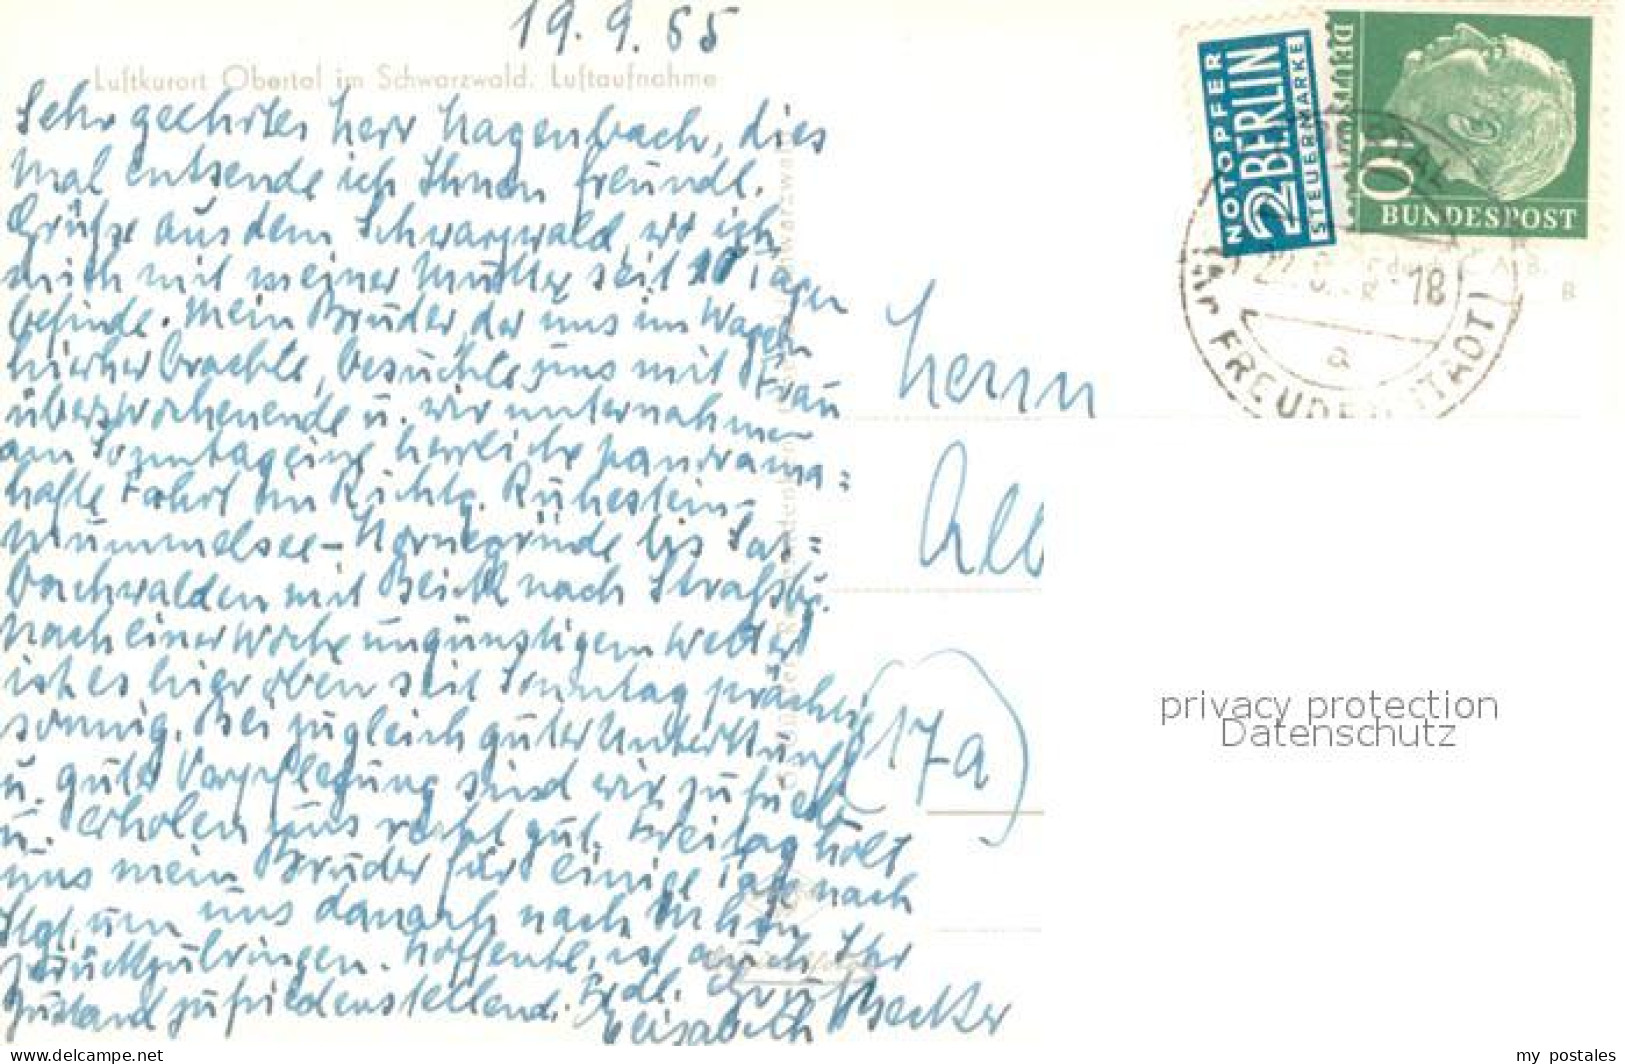 19. 9. 55
Luftkurort Obertal im Schwarzwald. Luftaufnahme
Sehr geehrter Herr Hagenbach, dies
Mal entsende ich Ihnen freundl.
Grüße aus dem Schwarzwald, wo ich
mich mit meiner Mutter seit 10 Tagen
befinde. Mein Bruder, der uns im Wagen
hierher brachte, besuchte uns mit Frau
übers Wochenende u. wir unternahmen
am Sonntag eine herrliche panorama=
hafte Fahrt in Richtg. Ruhestein-
Mummelsee-Hornisgrinde bis Sas=
bachwalden mit Blick nach Straßbg.
Nach einer Woche ungünstigem Wetter
ist es hier oben seit Sonntag prächtig
sonnig. Bei zugleich guter Unterkunft
u. guter Verpflegung sind wir zufrieden
u. erholen uns recht gut. Freitag holt
uns mein Bruder für einige Tage nach
Stgt, um uns danach nach
zurückzubringen. Hoffentl. ist auch Ihr
Zustand zufriedenstellend. Frdl. Gruß
Elisabeth Becker
NOTOPFER
2 BERLIN
STEUERMARKE
DEUTSCHE
10
BUNDESPOST
18
a
FREUDENSTADT
Herrn
All
(17a)
privacy protection
Datenschutz
www.delcampe.net
my_postales